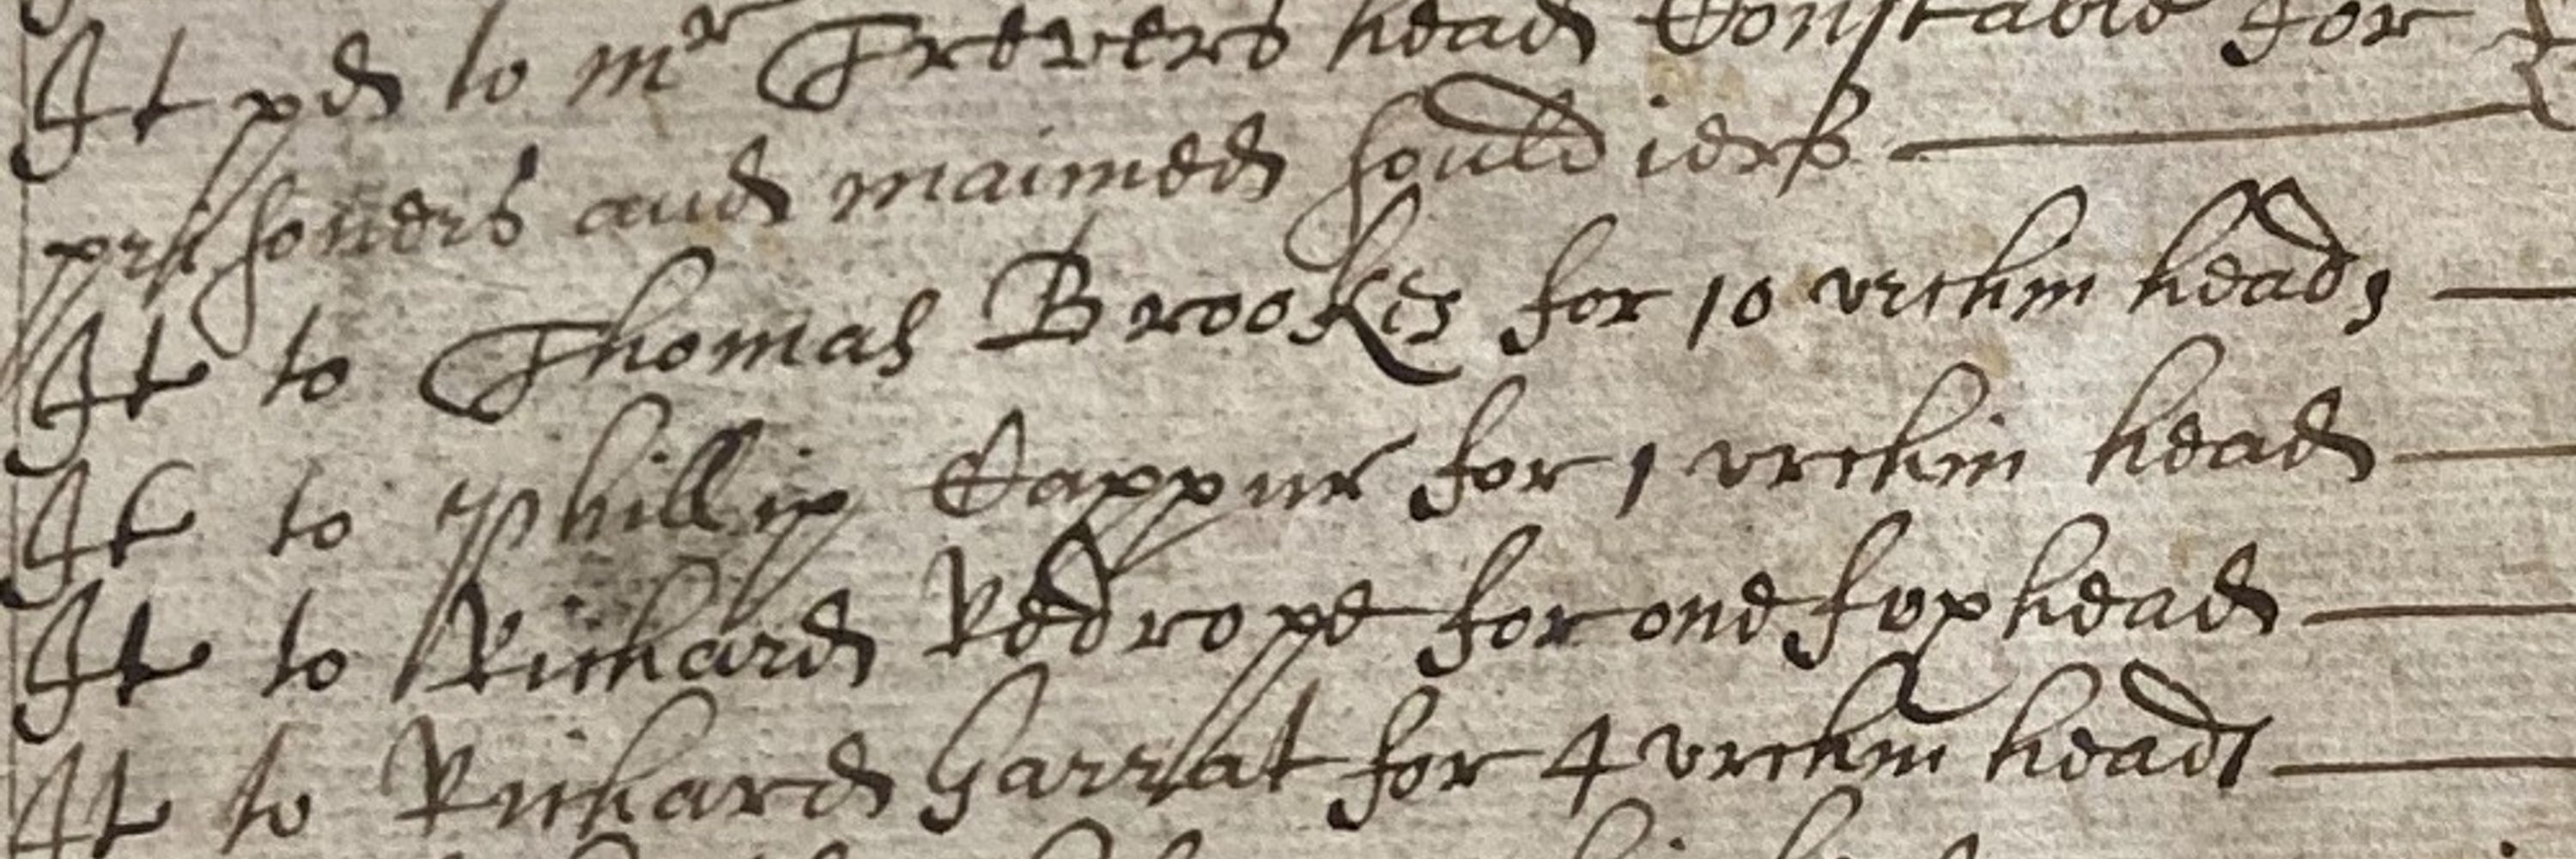 It pd to mr Trevers head Constable for
prissoners and maimed souldiers
It to Thomas Brookes for 10 vrchin heads
It to Phillip Cappur for 1 vrchin head
It to Richard Redrope for one fox head
It to Richard Garrat for 4 vrchin heads